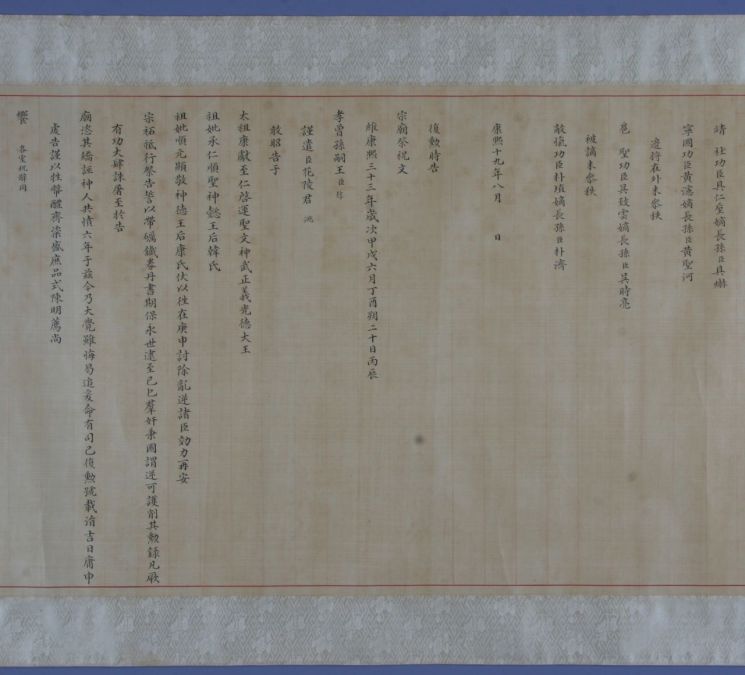 靖 社功臣具仁垕嫡長孫臣具爀
寧國功臣黃瀗嫡長孫臣黃聖河
適將在外未參秩
扈 聖功臣吳致雲嫡長孫臣吳時亮
被謫未參秩
敵愾功臣朴埴嫡長孫臣朴濟
康熙十九年八月 日
復勳時告
宗廟祭祝文
維康熙三十三年歲次甲戌六月丁酉朔二十日丙辰
孝曾孫嗣王臣
謹遣臣花陵君 洮
敢昭告于
太祖康獻至仁啓運聖文神武正義光德大王
祖妣承仁順聖神懿王后韓氏
祖妣順元顯敬神德王后康氏伏以往在庚申討除亂逆諸臣効力再安
宗祏祗行祭告誓以帶礪鐵券丹書期保永世逮至己巳羣奸秉國謂逆可護削其勳錄凡厥
有功大肆誅屠至於告
廟恣其矯誣神人共憤六年于玆今乃大覺雖悔曷追爰命有司已復勳號載消吉日庸申
虔告謹以牲幣醴齊粢盛庶品式陳明薦尚
饗 各室祝辭同